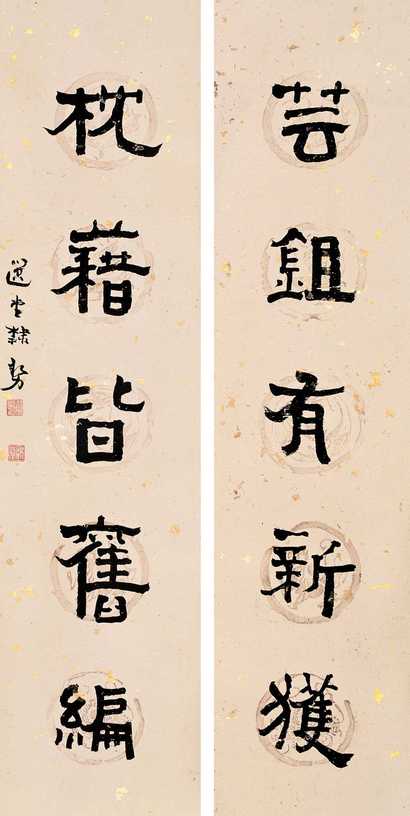 芸鉏有新獲
枕藉皆舊編
選堂隸勢